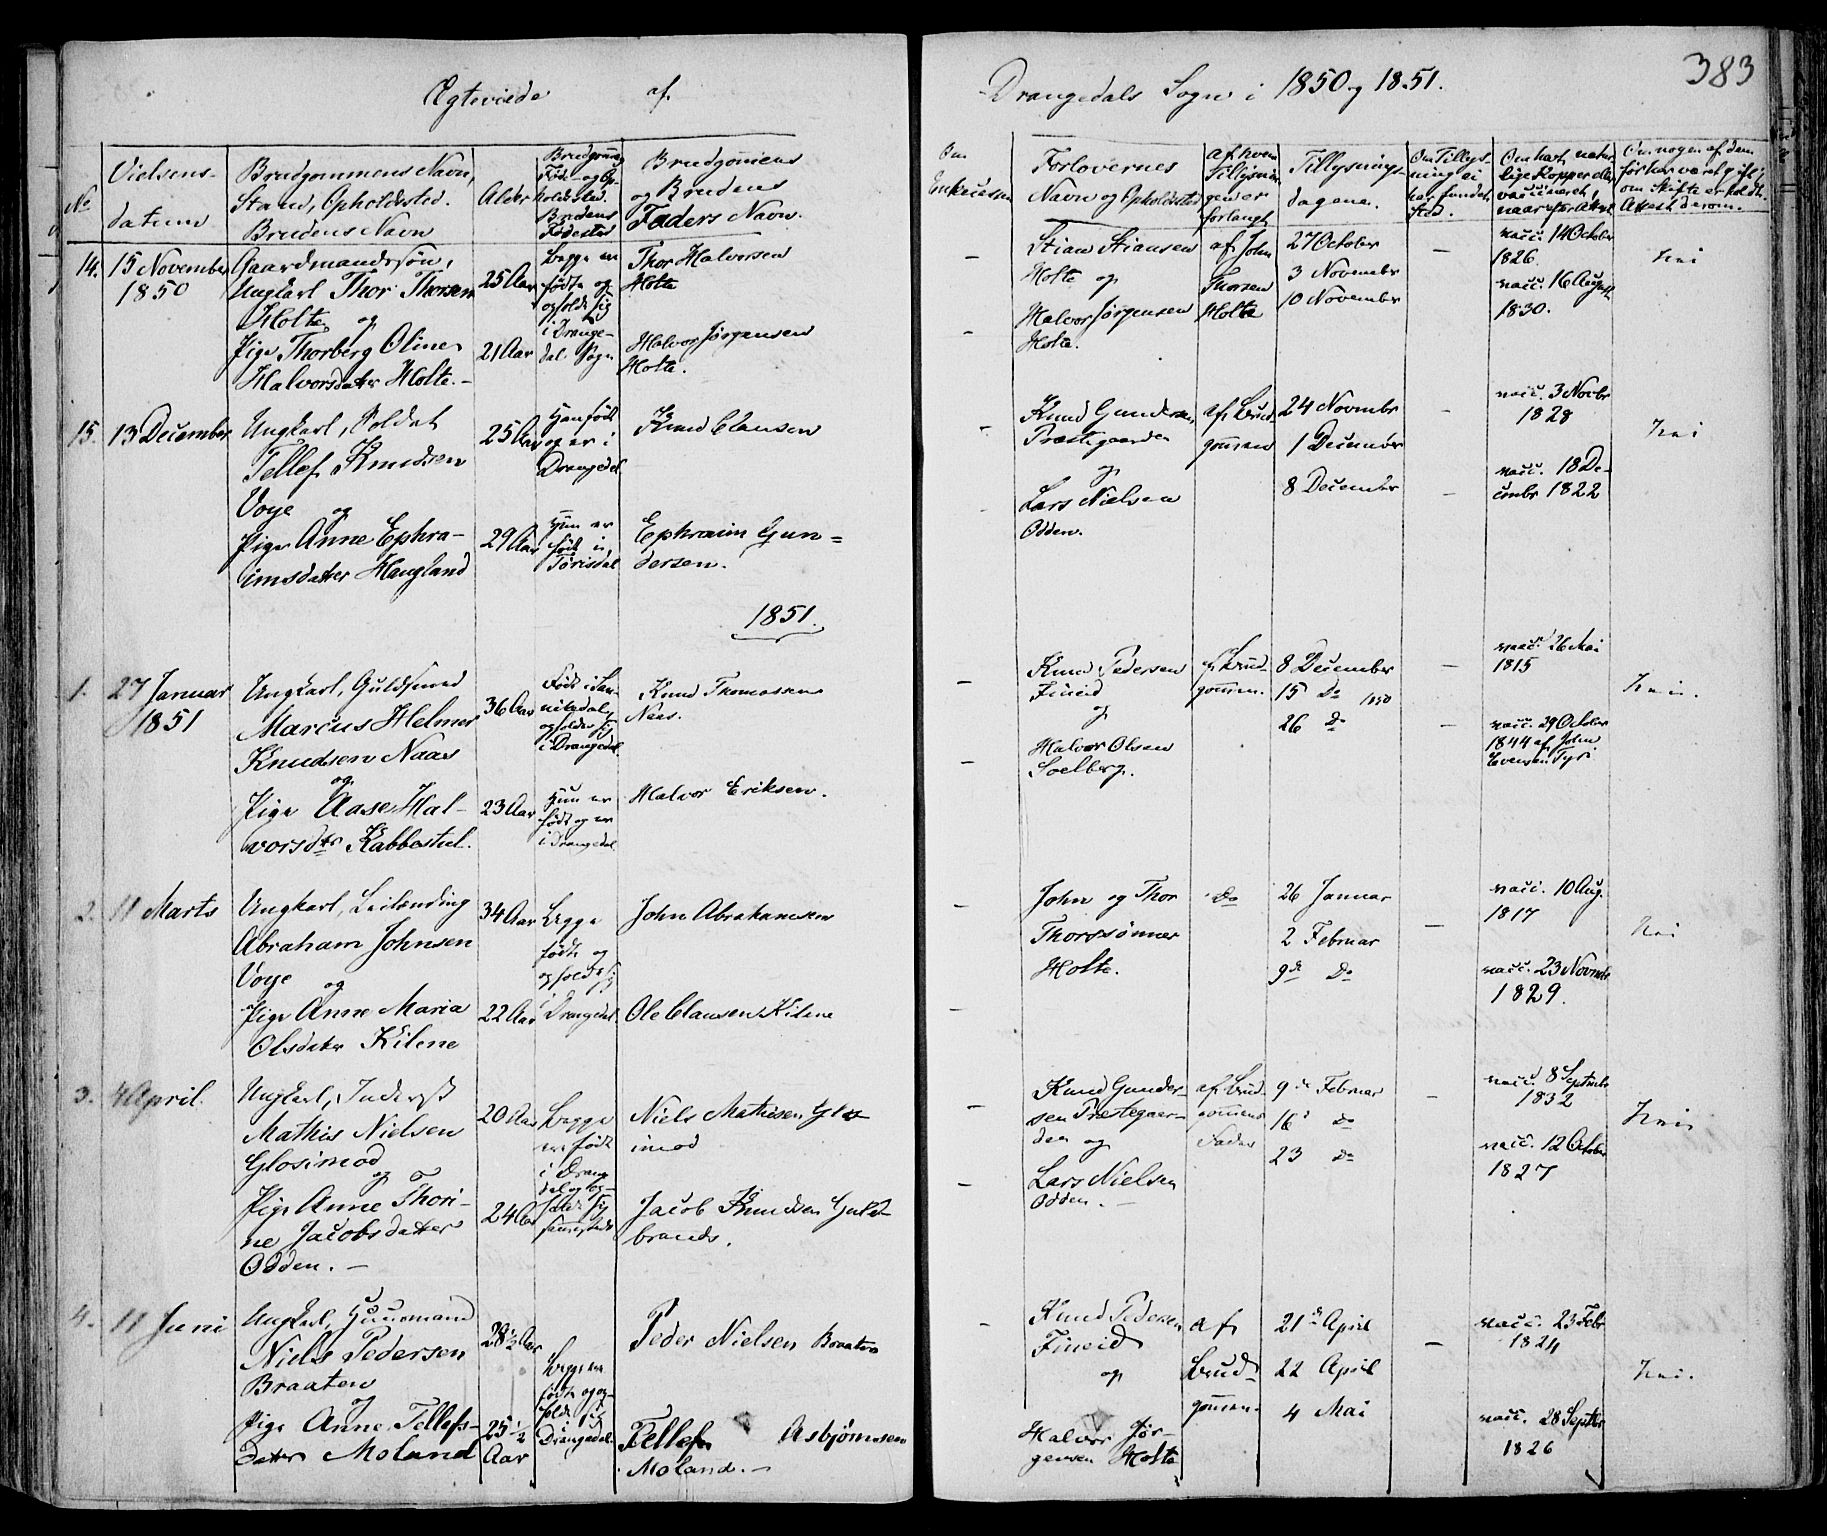 383
Ægteviede af
Drangedals Sogn i 1850 og 1851.
No
Vielsens-
datum
Brudgommens Navn,
Stand, Opholdsted.
Brudens Navn
Alder
Brudgoms
Føde- og Op-
holdsted.
Brudens
Fødested
Brudgommens
og Brudens
Faders Navn.
Om
Enkecassen
Forlovernes
Navn og Opholdsted
af hvem
Tillysnin
gen er
forlangt
Tillysnings-
dagene.
Om Tillys-
ning ei
har fundet
Sted.
Om havt natur
lige Kopper eller
vaccineret,
naar efter Attest
Om nogen af dem
før har været gift,
om Skifte er holdt.
Attest derom.
14. 15 November
1850
Gaardmandssøn,
Ungkarl Thor Thorsen
Holte og
Pige Thorberg Oline
Halvorsdatter Holte.-
25 Aar
21 Aar
Begge er
fødte og
opholde sig
i Drange-
dal Sogn
Thor Halvorsen
Holte
Halvor Jørgensen
Holte.
Stian Stiansen
Holte og
Halvor Jørgensen
Holte.
af John
Thorsen
Holte
27 October
3 November
10 November
vacc. 14 October
1826.
vacc. 16 August
1830.
Nei
15. 13 December
Ungkarl, Soldat
Tellef Knudsen
Voje og
Pige Anne Ephra-
imsdatter Haugland
25 Aar
29 Aar
Han født
og er i
Drangedal
Hun er
født i
Tørisdal
Knud Clausen
Ephraim Gun=
dersen.
Knud Gundersen
Præstegaarden
og
Lars Nielsen
Odden.
af Brud-
gommen
24 Novembr
1 December
8 December
vacc. 3 Novbr
1828
vacc. 18 De-
cembr 1822
Nei
1851.
1. 27 Januar
1851
Ungkarl, Guldsmed
Marcus Helmer
Knudsen Naas
og
Pige Aase Hal-
vorsdtr Kabbestul.
36 Aar
23 Aar
Født i San-
nikedal,
opholder sig
i Drangedal
Hun er
født og er
i Drangedal
Knud Thomassen
Naas.
Halvor Eriksen.
Knud Pedersen
Fineid
og
Halvor Olsen
Solberg.
af Brud-
gommen.
8 December
15 Do 1850
26 Do
vacc. 26 Mai
1815
vacc. 29 October
1844 af John
Evensen Tyri
Nei.
2. 11 Marts
Ungkarl, Leilænding
Abraham Johnsen
Voje og
Pige Anne Maria
Olsdatter Kilene
34 Aar
22 Aar
Begge
fødte og
opholde sig
i Drangedal
John Abrahamsen
Ole Clausen Kilene
John og Thor
Thorssønner
Holte.
Do
26 Januar
2 Februar
9de Do
vacc. 10 Aug.
1817
vacc. 23 Novembr
1829.
Nei
3. 4 April.
Ungkarl, Inderst
Mathis Nielsen
Glosimod
og
Pige Anne Thori-
ne Jacobsdatter
Odden. -
20 Aar
24 Aar
Begge
er født
i Drange
dal og op-
holder sig
sammesteds
Niels Mathisen Glos-
imod
Jacob Knudsen Guld-
brands.
Knud Gunder-
sen Præstegaar-
den og
Lars Nielsen
Odden. -
af Brud-
gommens
Fader
9de Februar
16 do
23 do
vacc. 8 Septembr
1832
vacc. 12 October
1827
Nei.
4. 11 Juni
Ungkarl, Huusmand
Niels Pedersen
Braaten
og
Pige Anne Tellefs-
datter Moland
28½ Aar
25½
Aar
Begge er
fødte og op-
holde sig i
Drangedal
Peder Nielsen Braaten
Tellef Asbjørnsen
Moland. -
Knud Pedersen
Fineid
og
Halvor Jør-
gensen Holte
af
Brud-
gommen.
21de April
22 April
4 Mai
vacc. 23 Febr
1824
vacc. 28 Septbr
1826
Nei.